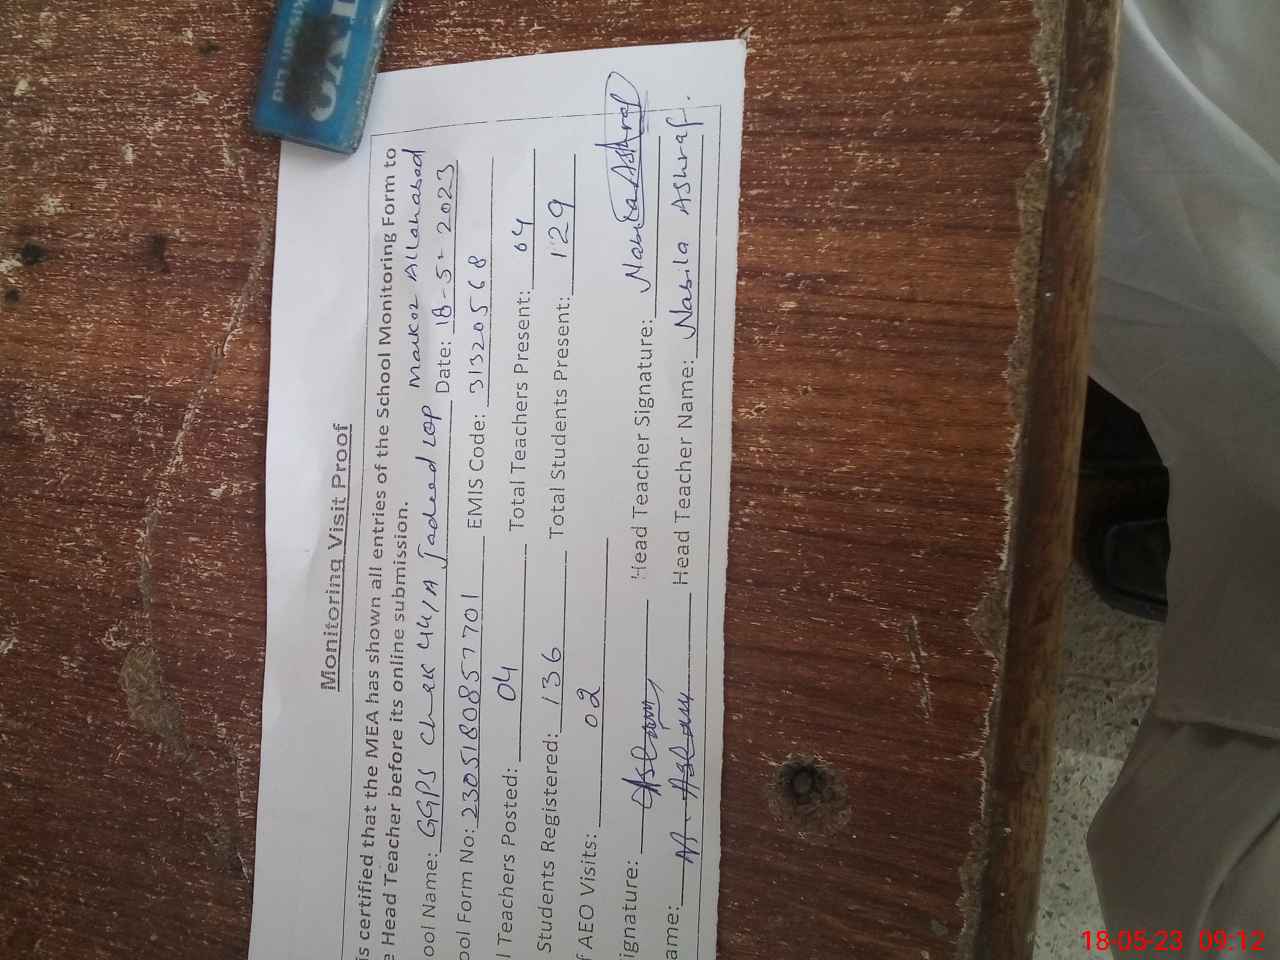 Monitoring Visit Proof
is certified that the MEA has shown all entries of the School Monitoring Form to
e Head Teacher before its online submission.
ool Name: GGPS Chak 44/A Jadeed LQP Markaz Allahabad
Date: 18-5-2023
ool Form No: 230518085 7701 EMIS Code: 31320568
l Teachers Posted: 04 Total Teachers Present: 04
Students Registered: 136 Total Students Present: 129
f AEO Visits: 02
ignature: Aslam Head Teacher Signature: Nabila Ashraf
ame: M. Aslam Head Teacher Name: Nabila Ashraf.
18-05-23 09:12